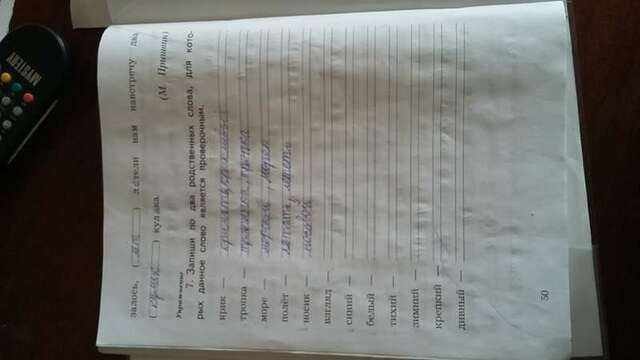 залось, ( лет ) летели нам навстречу два
( ) кулака. (М. Пришвин)
Упражнение
7. Запиши по два родственных слова, для кото-
рых данное слово является проверочным.
крик —
тропка — тропинка, тропа
море — морской, моряк
полёт — летать, лететь
носик — носовой
взгляд —
синий —
белый —
тихий —
зимний —
крепкий —
дивный —
50
MYSTERY